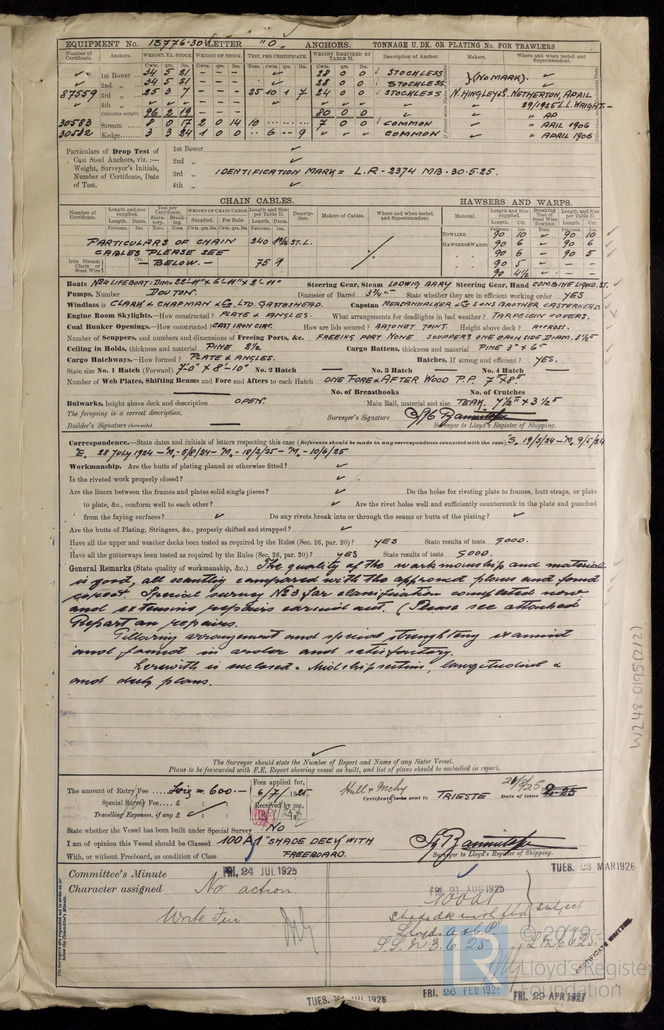 EQUIPMENT No. 13776-30 LETTER "O" ANCHORS. TONNAGE U. DK. OR PLATING No. FOR TRAWLERS
Number of Certificate. Anchors. WEIGHT, EX. STOCK. WEIGHT OF STOCK. TEST, PER CERTIFICATE. WEIGHT REQUIRED BY TABLE 31. Description of Anchor. Makers. Where and when tested, and Superintendent.
1st Bower 34 5 21 – – – 28 0 0 STOCKLESS (NO MARK).
2nd " 34 5 21 – – – 28 0 0 STOCKLESS
87559 3rd " 25 3 7 – – – 25 10 1 7 24 0 0 STOCKLESS N. HINGLEY & S. NETHERTON, APRIL
4th " 29/1925 L.L. WRIGHT.
Collective weight. 96 2 19 80 0 0
30583 Stream 8 0 17 2 0 14 10 7 0 0 COMMON APRIL 1906
30582 Kedge 3 3 24 1 0 0 6 – 9 COMMON APRIL 1906
Particulars of Drop Test of Cast Steel Anchors, viz.:— Weight, Surveyor's Initials, Number of Certificate, Date of Test.
1st Bower
2nd "
3rd " IDENTIFICATION MARK = L.R - 2374 MB - 30.5.25.
4th "
CHAIN CABLES. HAWSERS AND WARPS.
Number of Certificate. Length and size supplied. Test per Certificate WEIGHT OF CHAIN CABLE. Length and Size per Table 31. Description. Makers of Cables. Where and when tested, and Superintendent. Material. Length and Size supplied. Breaking Test of Steel Wire Towline. Length and Size per Table 31.
PARTICULARS OF CHAIN 240 ST. L. TOWLINE 90 10 90 10
CABLES PLEASE SEE HAWSERS & WARPS 90 6 90 6
90 6 90 5
Iron Stream Chain or Steel Wire – BELOW. – 75 90 5
90 4½
Boats No 4 LIFEBOAT: DIMS. 22'-11" x 6'-11" x 2'-11" Steering Gear, Steam LUDWIG BARY Steering Gear, Hand COMBINE
Pumps, Number DOWTON. Diameter of Barrel State whether they are in efficient working order YES
Windlass is CLARK & CHAPMAN & Co. LTD. GATESHEAD. Capstan
Engine Room Skylights.—How constructed? PLATE & ANGLES. What arrangements for deadlights in bad weather? TARPAULIN COVERS.
Coal Bunker Openings.—How constructed? CAST IRON CIRC. How are lids secured? BAYONET JOINT. Height above deck?
Number of Scuppers, and numbers and dimensions of Freeing Ports, &c. FREEING PORT NONE SCUPPERS ONE EACH SIDE DIAM. 3½"
Ceiling in Holds, thickness and material PINE 2½ Cargo Battens, thickness and material PINE 2" x 6"
Cargo Hatchways.—How formed? PLATE & ANGLES. Hatches, If strong and efficient? YES.
State size No. 1 Hatch (Forward) 7'-0" x 8'-10" No. 2 Hatch No. 3 Hatch No. 4 Hatch
Number of Web Plates, Shifting Beams and Fore and Afters to each Hatch ONE FORE & AFTER WOOD P.P. 7" x 8"
No. of Breasthooks No. of Crutches
Bulwarks, height above deck and description OPEN. Main Rail, material and size TEAK. 7½" x 3½"
The foregoing is a correct description. Surveyor's Signature
Builder's Signature Surveyor to Lloyd's Register of Shipping.
Correspondence.—State dates and initials of letters respecting this case (Reference should be made in any correspondence connected with the case) S. 19/3/24 – M. 9/5/24
E. 28 July 1924 – M – 5/8/24 – M – 18/2/25 – M – 10/6/25
Workmanship. Are the butts of plating planed or otherwise fitted?
Is the riveted work properly closed?
Are the liners between the frames and plates solid single pieces? Do the holes for riveting plate to frames, butt straps, or plate
to plate, &c., conform well to each other? Are the rivet holes well and sufficiently countersunk in the plate and punched
from the faying surfaces? Do any rivets break into or through the seams or butts of the plating?
Are the butts of Plating, Stringers, &c., properly shifted and strapped?
Have all the upper and weather decks been tested as required by the Rules (Sec. 26, par. 20)? YES State results of tests GOOD.
Have all the gutterways been tested as required by the Rules (Sec. 26, par. 20)? YES State results of tests GOOD.
General Remarks (State quality of workmanship, &c.) The quality of the workmanship and material
is good, all scantling compared with the approved plans and found
correct Special survey No 3 for classification completed now
and extensive repairs carried out. (Please see attached
Report on repairs.
Pillaring arrangement and special strengthening examined
and found in order and satisfactory.
Herewith is enclosed. Midship section, longitudinal &
and deck plans.
The Surveyor should state the Number of Report and Name of any Sister Vessel.
Plans to be forwarded with F.E. Report showing vessel as built, and list of plans should be embodied in report.
The amount of Entry Fee = 600.– Fees applied for, 6/7/1925 Hull & Mchy Certificate to be sent to TRIESTE Date of issue
Special Survey Fee.... £ : : Received by me,
Travelling Expenses, if any £ : :
State whether the Vessel has been built under Special Survey No
I am of opinion this Vessel should be Classed 100 A1 "SHADE DECK WITH
With, or without Freeboard, as condition of Class FREEBOARD. Surveyor to Lloyd's Register of Shipping.
Committee's Minute FRI. 24 JUL 1925 TUES. 23 MAR 1926
Character assigned No action FRI. 21 AUG 1925
100A1
Write Fin Shade dk with fbd Subject
Lloyds A & C P
S.S. No 3. 6. 25 LMC 6.25
© 2019
Lloyd's Register
Foundation
FRI. 26 FEB 1926 FRI. 29 APR 1927
W248-0195(2/2)